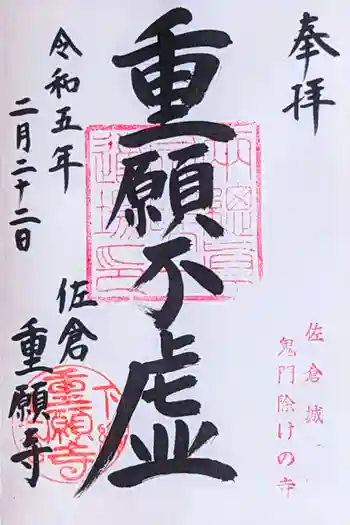 奉拝
佐倉城
鬼門除けの寺
重願不虚
令和五年
二月二十二日
佐倉
重願寺
重願寺